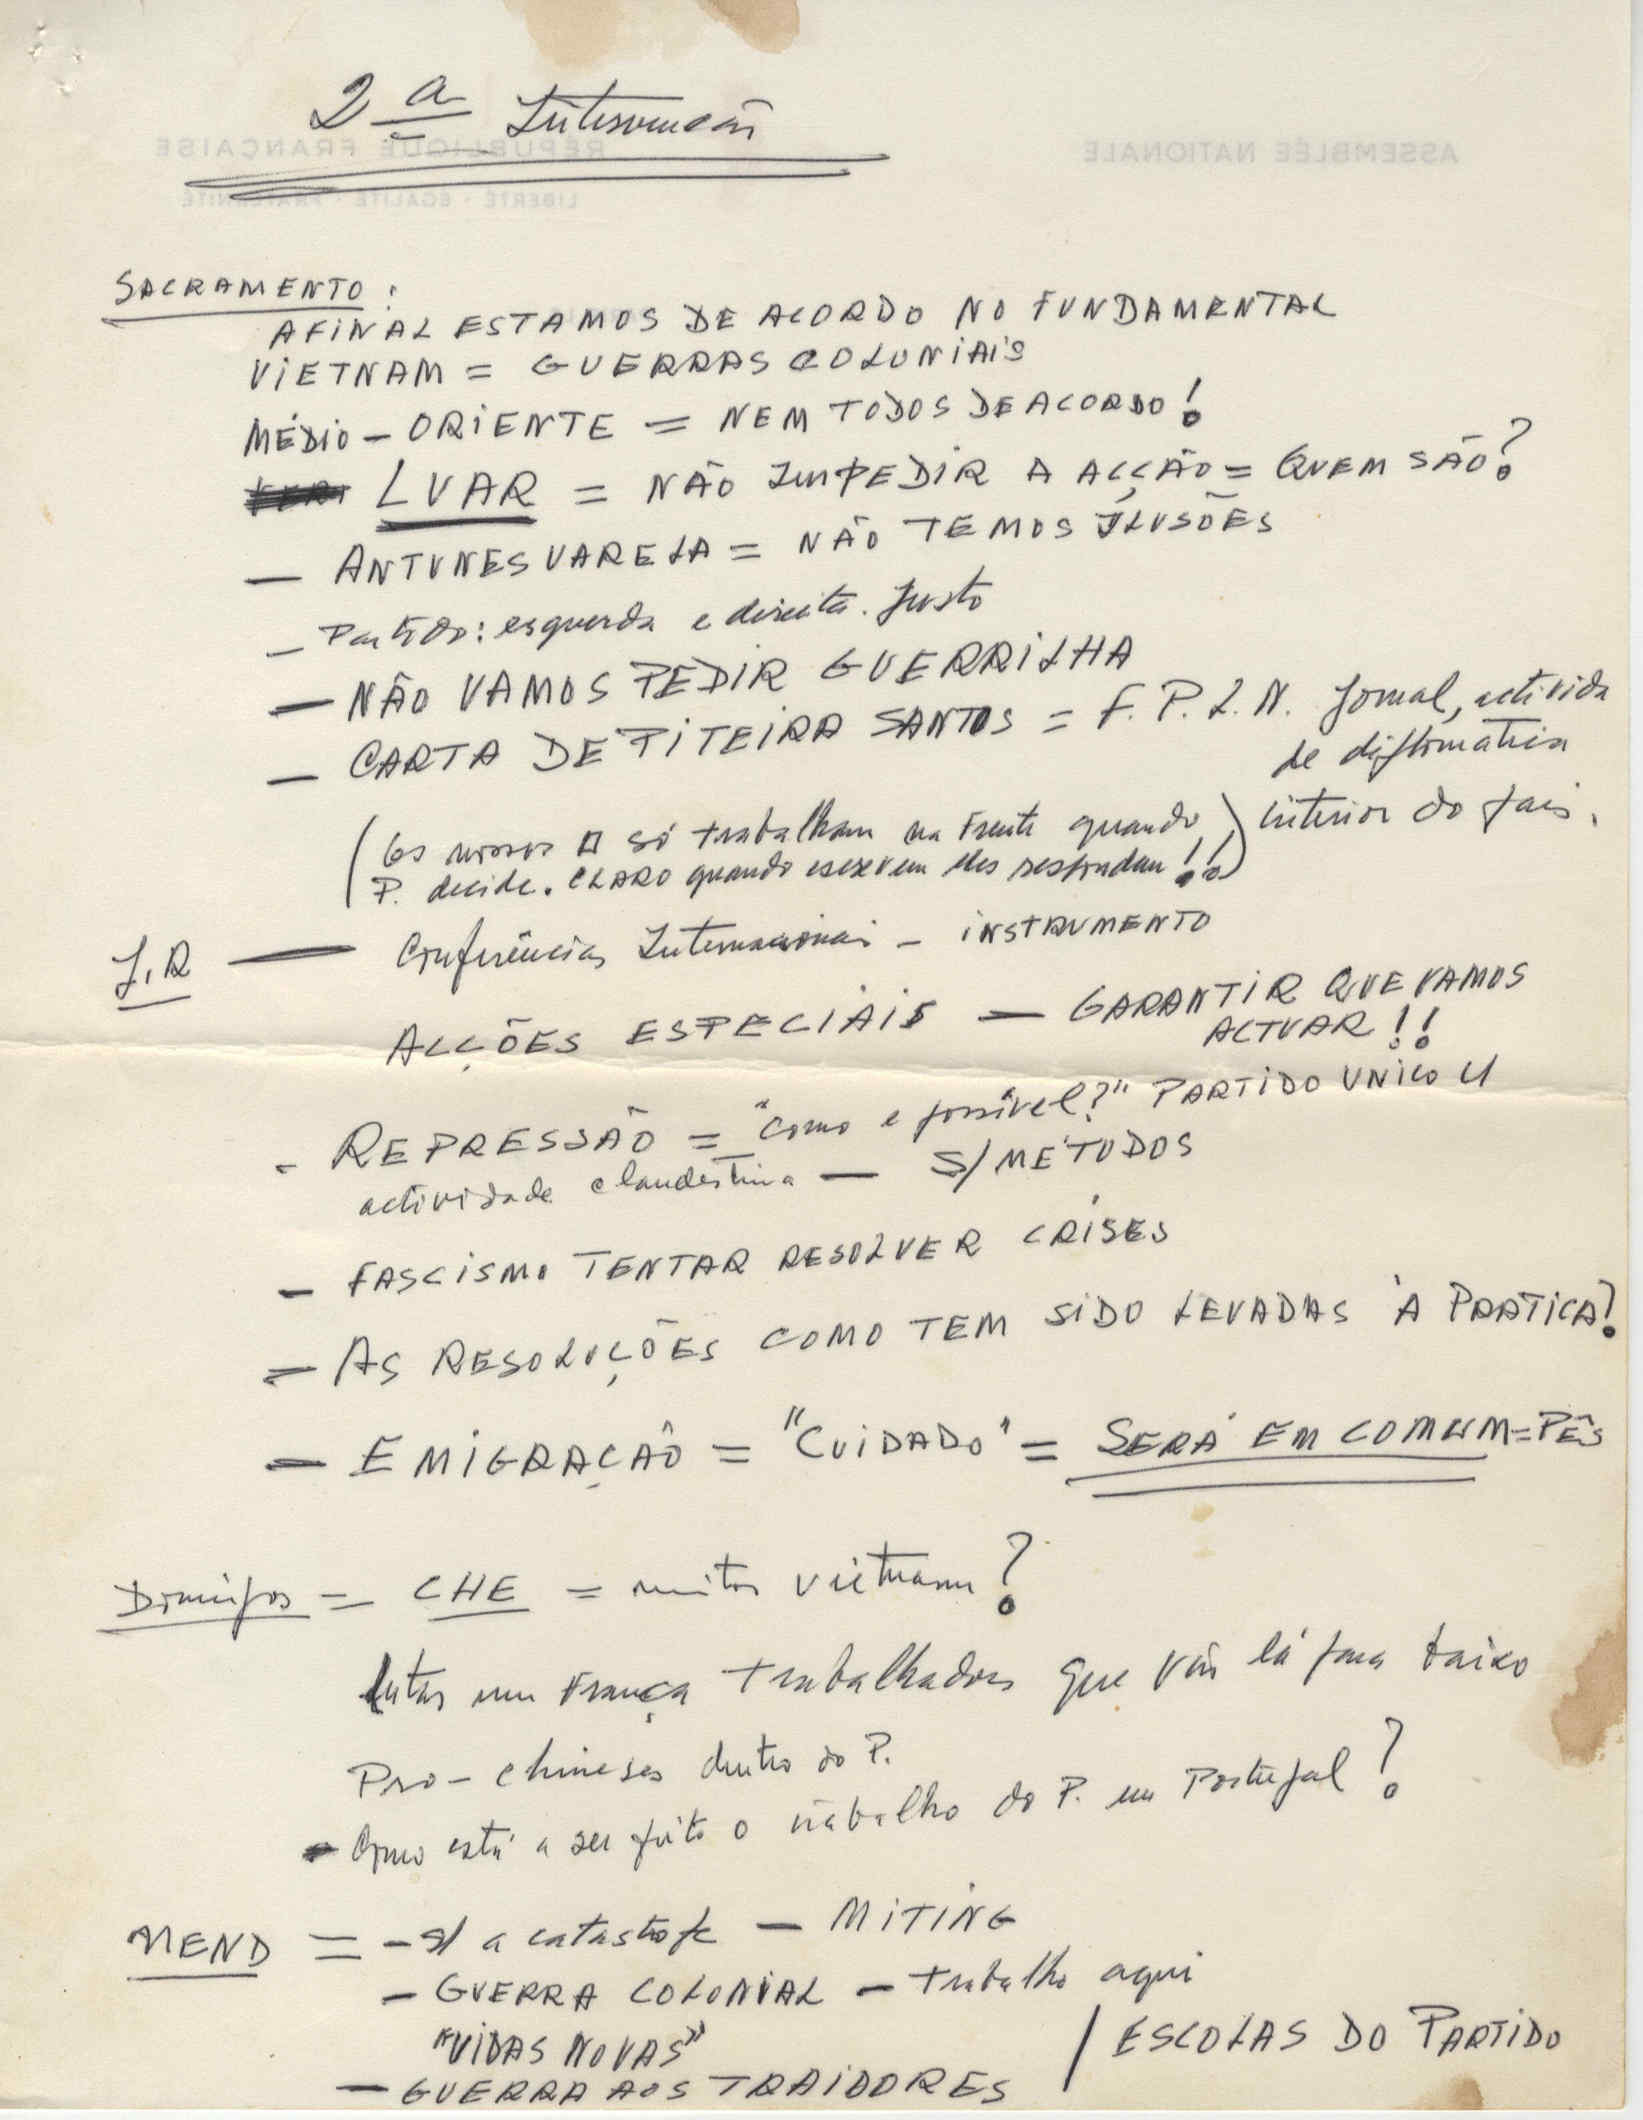 2ª Intervenção
RÉPUBLIQUE FRANÇAISE
LIBERTÉ · ÉGALITÉ · FRATERNITÉ
ASSEMBLÉE NATIONALE
SACRAMENTO:
AFINAL ESTAMOS DE ACORDO NO FUNDAMENTAL
VIETNAM = GUERRAS COLONIAIS
MÉDIO-ORIENTE = NEM TODOS DE ACORDO!
LUAR = NÃO IMPEDIR A ACÇÃO = QUEM SÃO?
— ANTUNES VARELA = NÃO TEMOS ILUSÕES
— Partido: esquerda e direita. Justo
— NÃO VAMOS PEDIR GUERRILHA
— CARTA DE PITEIRA SANTOS = F.P.L.N. Jornal, activida
de diplomatica
interior do pais.
(Os nossos só trabalham na Frente quando
P. decide. CLARO quando escrevem eles respondem!!)
J.R — Conferências Internacionais — INSTRUMENTO
ACÇÕES ESPECIAIS — GARANTIR QUE VAMOS
ACTUAR!!
- REPRESSÃO = "Como e possível?" PARTIDO UNICO
actividade clandestina — S/ MÉTODOS
- FASCISMO TENTAR RESOLVER CRISES
- AS RESOLUÇÕES COMO TEM SIDO LEVADAS À PRATICA?
- EMIGRAÇÃO = "CUIDADO" = SERÁ EM COMUM = PÊS
Domingos = CHE = muitos vietnam?
lutas em França trabalhadores que vão lá para baixo
Pro-chineses dentro do P.
- Como está a ser feito o trabalho do P. em Portugal?
MEND = - S/ a catastrofe — MITING
- GUERRA COLONIAL — trabalho aqui
"VIDAS NOVAS"
/ ESCOLAS DO PARTIDO
— GUERRA AOS TRAIDORES